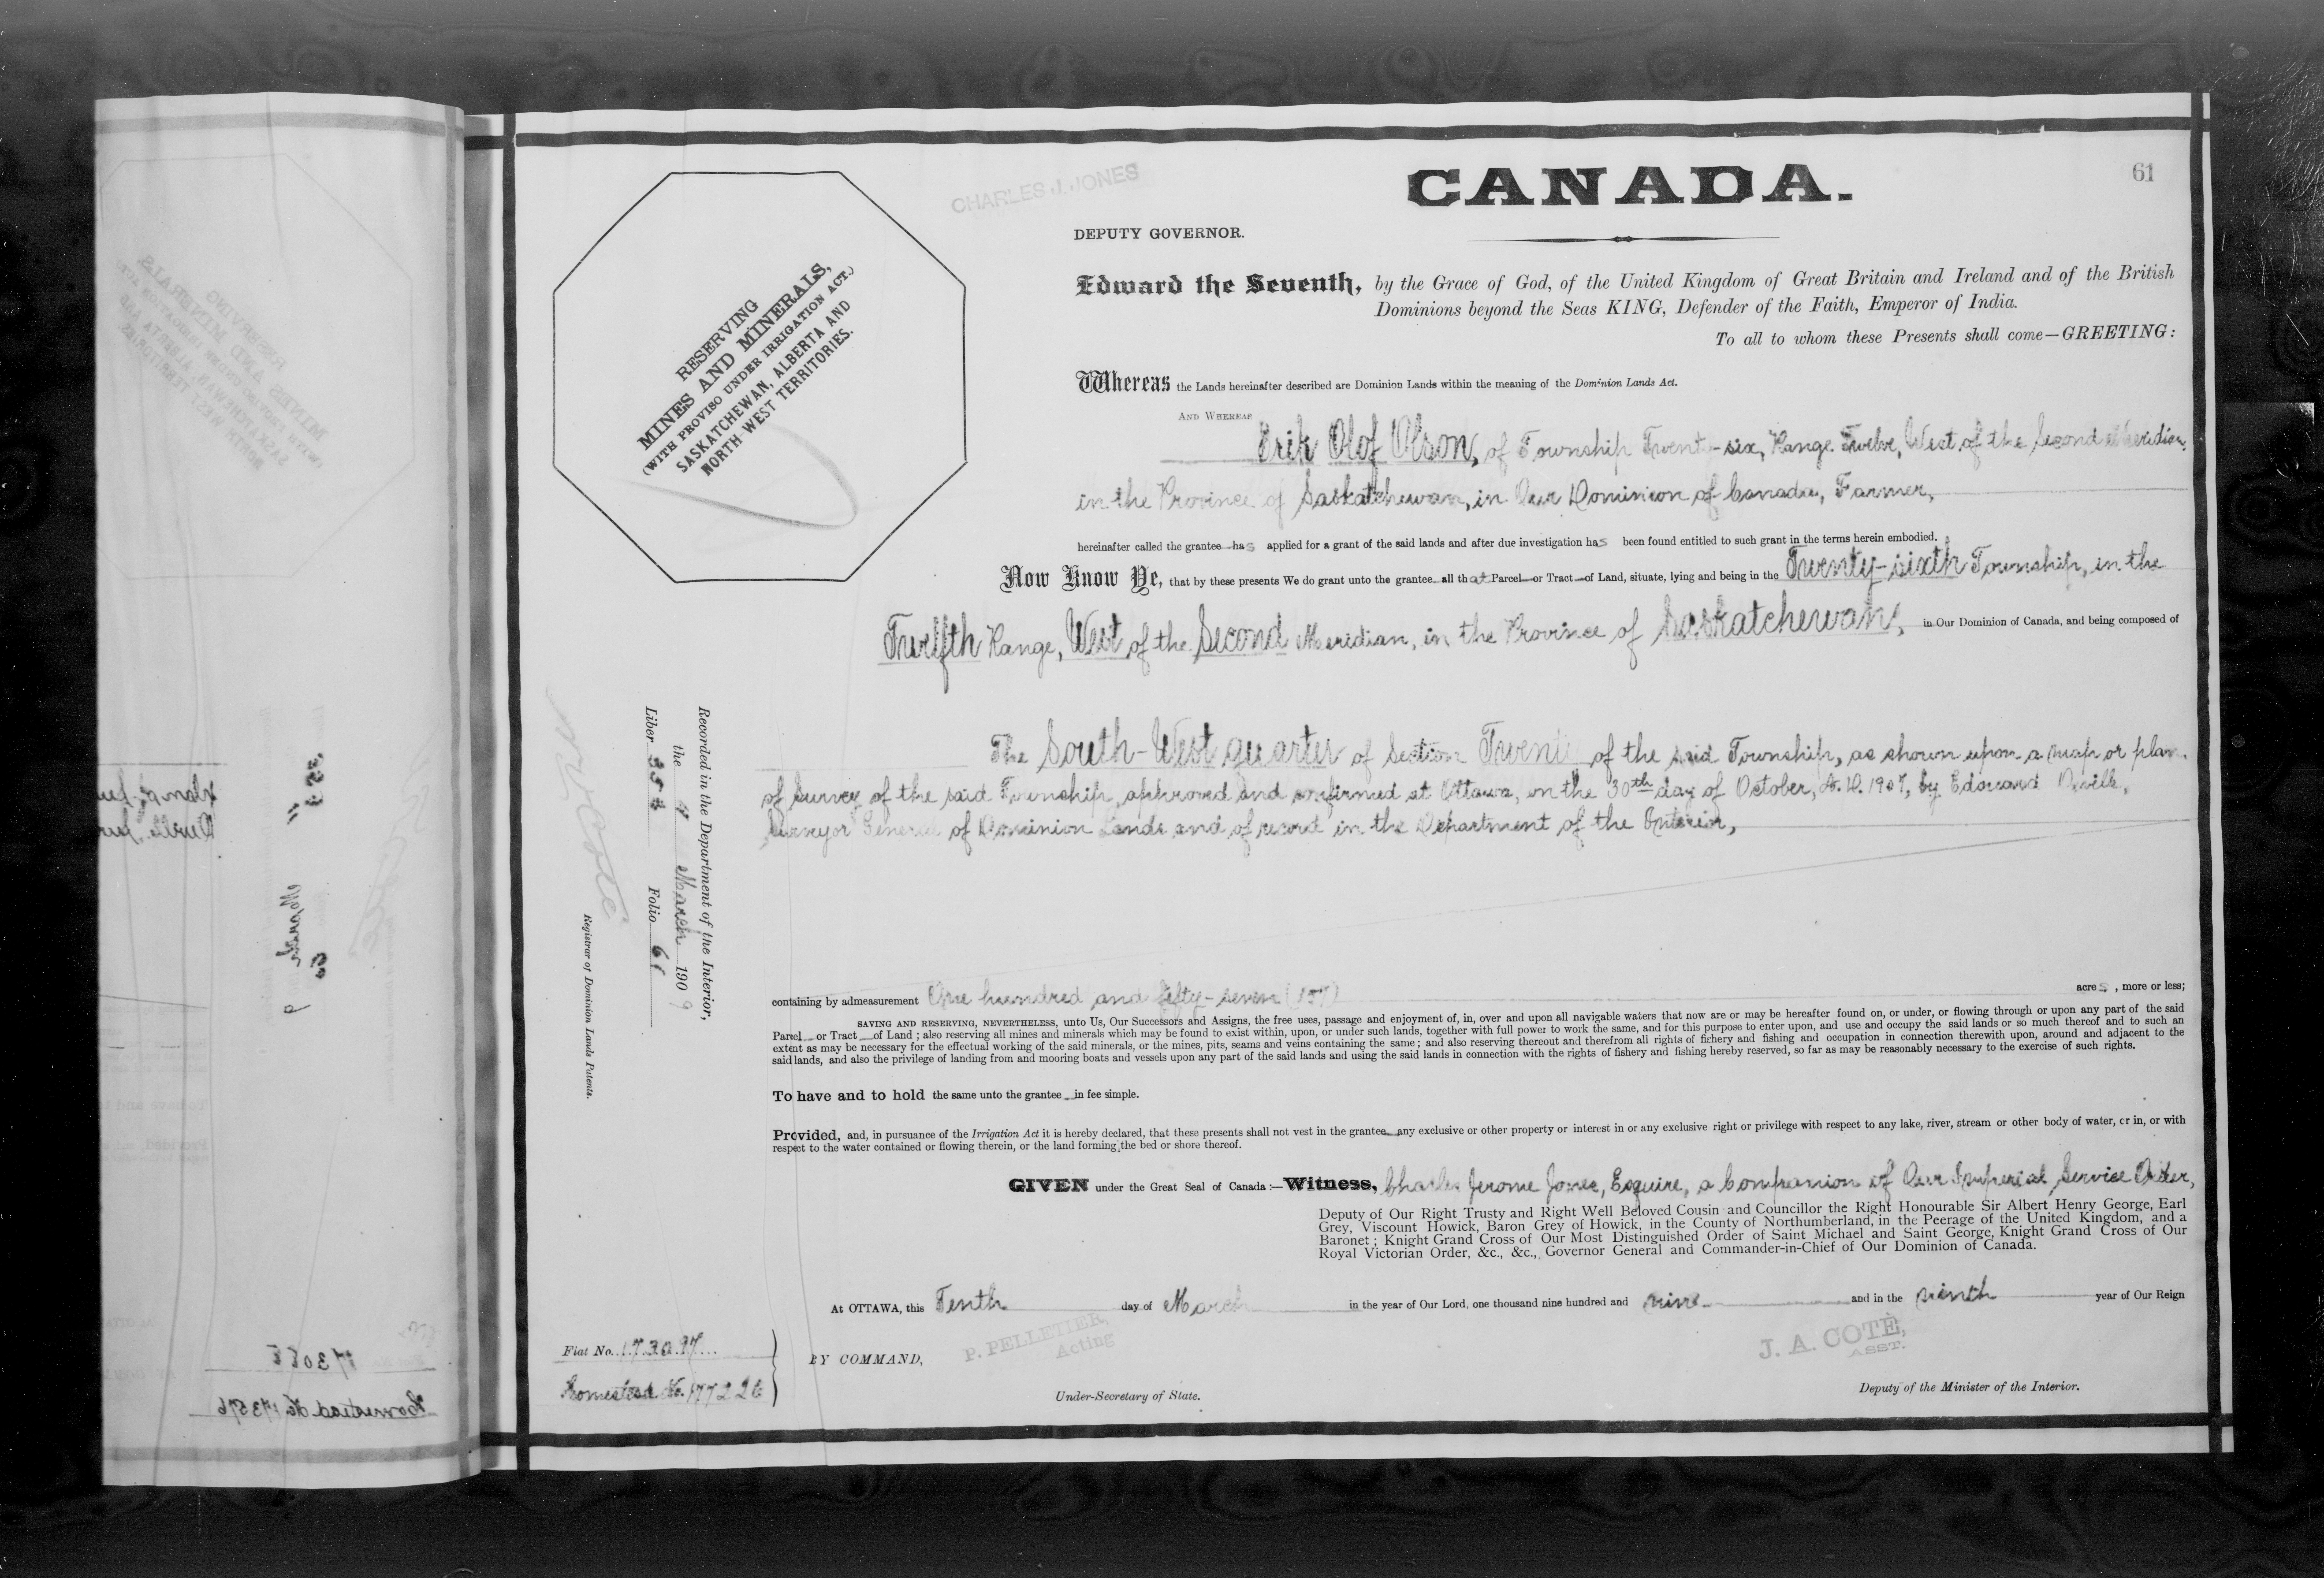 61
CHARLES J. JONES
CANADA.
DEPUTY GOVERNOR.
Edward the Seventh, by the Grace of God, of the United Kingdom of Great Britain and Ireland and of the British
Dominions beyond the Seas KING, Defender of the Faith, Emperor of India.
To all to whom these Presents shall come—GREETING:
RESERVING
MINES AND MINERALS,
(WITH PROVISO UNDER IRRIGATION ACT.)
SASKATCHEWAN, ALBERTA AND
NORTH WEST TERRITORIES.
Whereas the Lands hereinafter described are Dominion Lands within the meaning of the Dominion Lands Act.
AND WHEREAS
Erik Olof Olson, of Township Twenty-six, Range Twelve, West of the Second Meridian,
in the Province of Saskatchewan, in Our Dominion of Canada, Farmer,
hereinafter called the grantee has applied for a grant of the said lands and after due investigation has been found entitled to such grant in the terms herein embodied.
Now Know Ye, that by these presents We do grant unto the grantee all that Parcel or Tract of Land, situate, lying and being in the Twenty-sixth Township, in the
Twelfth Range, West of the Second Meridian, in the Province of Saskatchewan, in Our Dominion of Canada, and being composed of
The South-West quarter of Section Twenty of the said Township, as shown upon a map or plan
of Survey of the said Township, approved and confirmed at Ottawa, on the 30th day of October, A.D. 1907, by Edouard Deville,
Surveyor General of Dominion Lands and of record in the Department of the Interior,
Recorded in the Department of the Interior,
the 4 March 1909
Liber 354 Folio 61
Registrar of Dominion Lands Patents.
containing by admeasurement One hundred and fifty-seven (157) acres, more or less;
SAVING AND RESERVING, NEVERTHELESS, unto Us, Our Successors and Assigns, the free uses, passage and enjoyment of, in, over and upon all navigable waters that now are or may be hereafter found on, or under, or flowing through or upon any part of the said
Parcel or Tract of Land; also reserving all mines and minerals which may be found to exist within, upon, or under such lands, together with full power to work the same, and for this purpose to enter upon, and use and occupy the said lands or so much thereof and to such an
extent as may be necessary for the effectual working of the said minerals, or the mines, pits, seams and veins containing the same; and also reserving thereout and therefrom all rights of fichery and fishing and occupation in connection therewith upon, around and adjacent to the
said lands, and also the privilege of landing from and mooring boats and vessels upon any part of the said lands and using the said lands in connection with the rights of fishery and fishing hereby reserved, so far as may be reasonably necessary to the exercise of such rights.
To have and to hold the same unto the grantee in fee simple.
Provided, and, in pursuance of the Irrigation Act it is hereby declared, that these presents shall not vest in the grantee any exclusive or other property or interest in or any exclusive right or privilege with respect to any lake, river, stream or other body of water, or in, or with
respect to the water contained or flowing therein, or the land forming the bed or shore thereof.
GIVEN under the Great Seal of Canada:—Witness, Charles Jerome Jones, Esquire, a Companion of Our Imperial Service Order,
Deputy of Our Right Trusty and Right Well Beloved Cousin and Councillor the Right Honourable Sir Albert Henry George, Earl
Grey, Viscount Howick, Baron Grey of Howick, in the County of Northumberland, in the Peerage of the United Kingdom, and a
Baronet; Knight Grand Cross of Our Most Distinguished Order of Saint Michael and Saint George, Knight Grand Cross of Our
Royal Victorian Order, &c., &c., Governor General and Commander-in-Chief of Our Dominion of Canada.
At OTTAWA, this Tenth day of March in the year of Our Lord, one thousand nine hundred and nine and in the ninth year of Our Reign
Fiat No. 173097
Homestead No. 177226
BY COMMAND,
P. PELLETIER,
Acting
Under-Secretary of State.
J. A. COTÉ,
ASST.
Deputy of the Minister of the Interior.